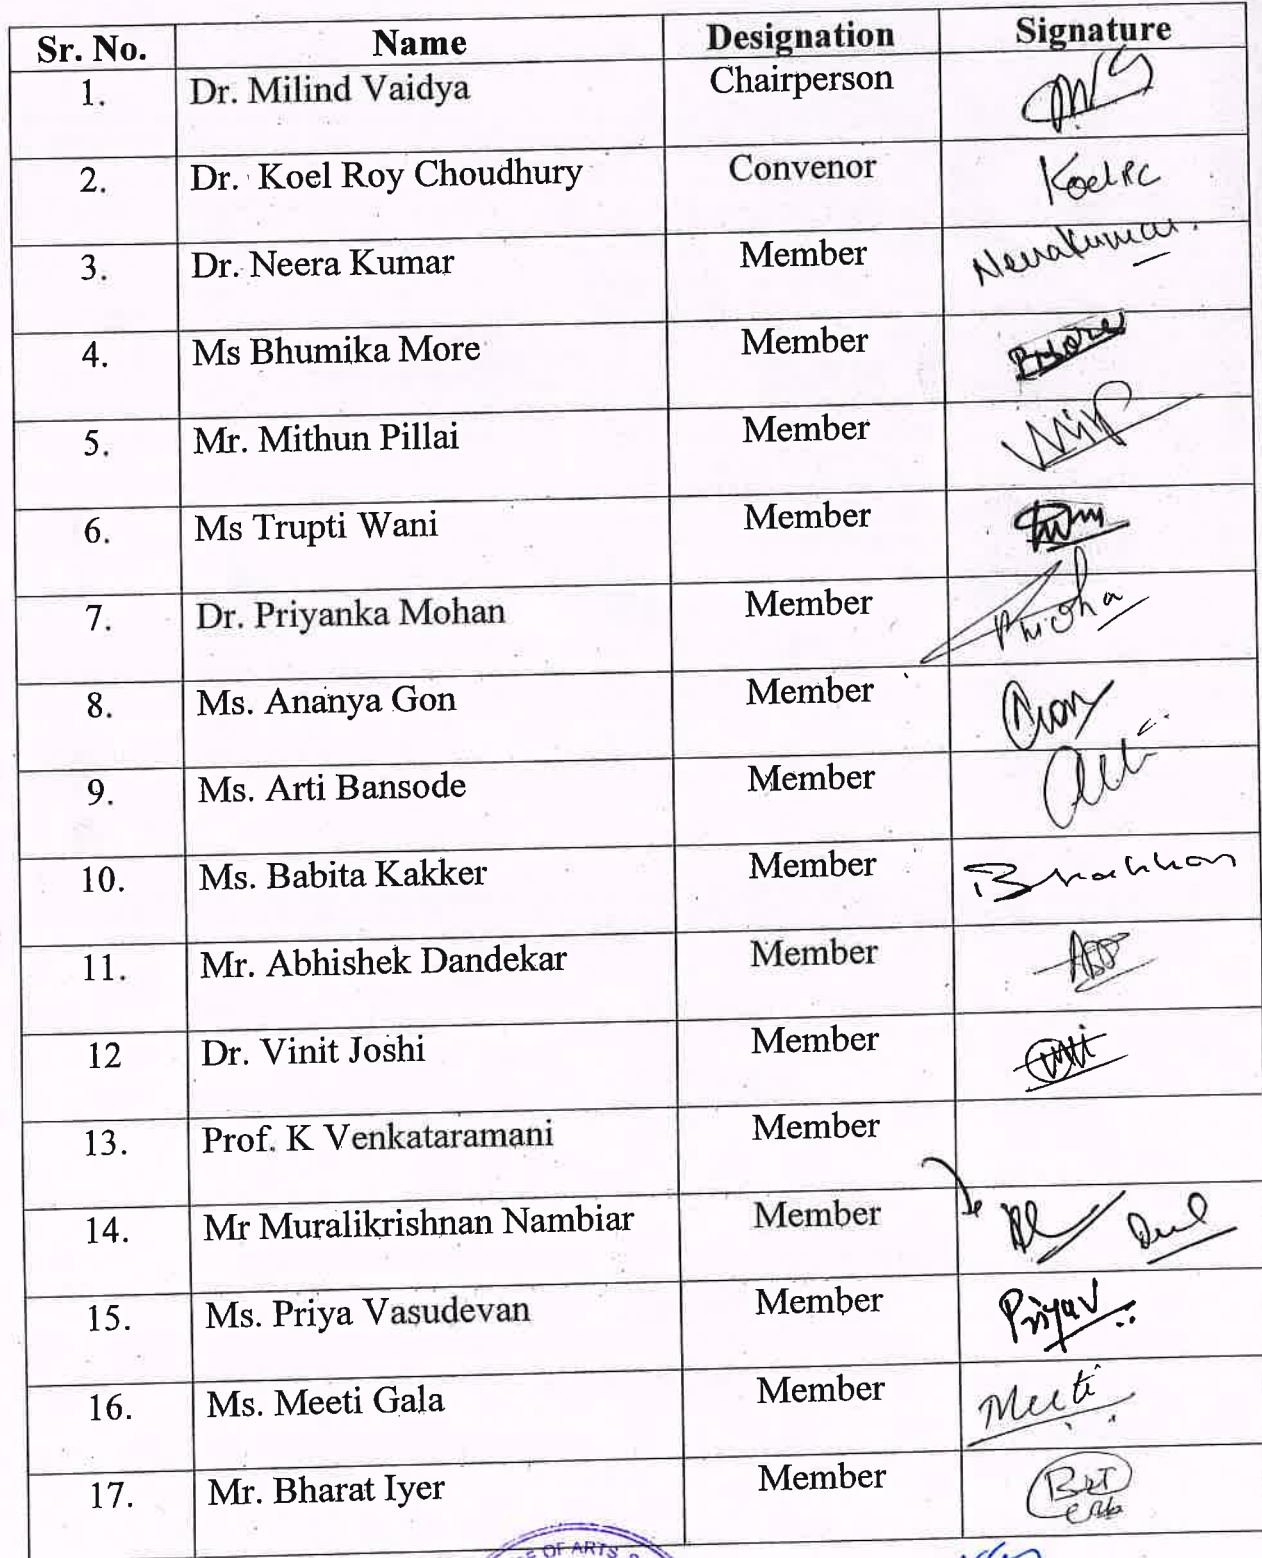 Sr. No. Name Designation Signature
1. Dr. Milind Vaidya Chairperson
2. Dr. Koel Roy Choudhury Convenor KoelRC
3. Dr. Neera Kumar Member Neerakumar.
4. Ms Bhumika More Member
5. Mr. Mithun Pillai Member
6. Ms Trupti Wani Member
7. Dr. Priyanka Mohan Member
8. Ms. Ananya Gon Member
9. Ms. Arti Bansode Member
10. Ms. Babita Kakker Member
11. Mr. Abhishek Dandekar Member
12 Dr. Vinit Joshi Member
13. Prof. K Venkataramani Member
14. Mr Muralikrishnan Nambiar Member
15. Ms. Priya Vasudevan Member PriyaV
16. Ms. Meeti Gala Member Meeti
17. Mr. Bharat Iyer Member
OF ARTS